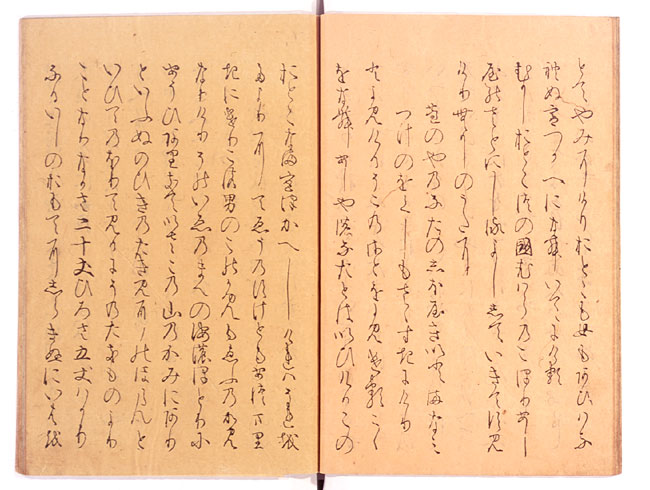 とてやみにけりおとこも女もあひはな
れぬ宮つかへになむいてにける
むかしおとこ津の國むはらのこほりあし
屋のさとにしるよしゝていきてすみ
けり昔のうたに
芦のやのなたのしほ屋きいとまなみ
つけのをくしもさゝすきにけり
とよみけるそこのさとをよみけるこゝ
をなむあしやのなたとはいひけるこの
おとこなま宮つかへしけれはそれを
たよりにてゑふのすけともあつまり
きにけりこの男のこのかみもゑふのかみ
なりけりそのいゑのまへの海のほとりに
あそひありきていさこの山のかみにあり
といふぬのひきのたき見にのほらんと
いひてのほりて見るにそのたきものより
ことなりなかさ二十丈ひろさ五丈はかり
なるいしのおもてにしらきぬにいはを